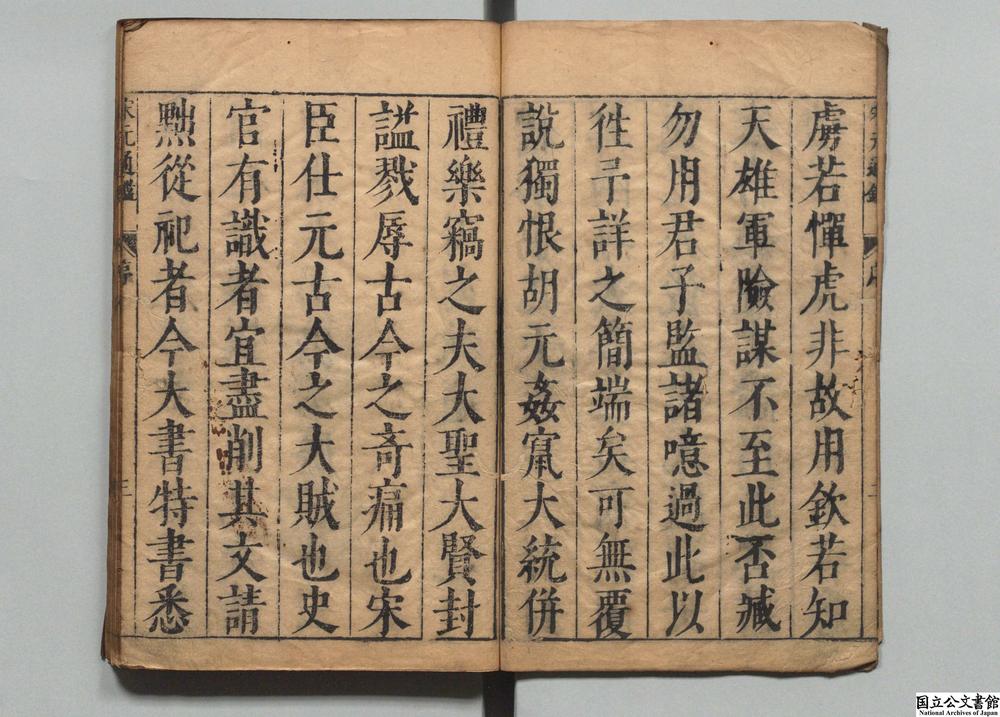 虜若憚虎非故用欽若知
天雄軍險謀不至此否臧
勿用君子監諸噫過此以
徃予詳之簡端矣可無覆
說獨恨胡元姦窺大統併
禮樂竊之夫大聖大賢封
諡戮辱古今之奇痛也宋
臣仕元古今之大賊也史
官有識者宜盡削其文請
黜從祀者今大書特書悉
宋元通鑑
序
三
国立公文書館
National Archives of Japan